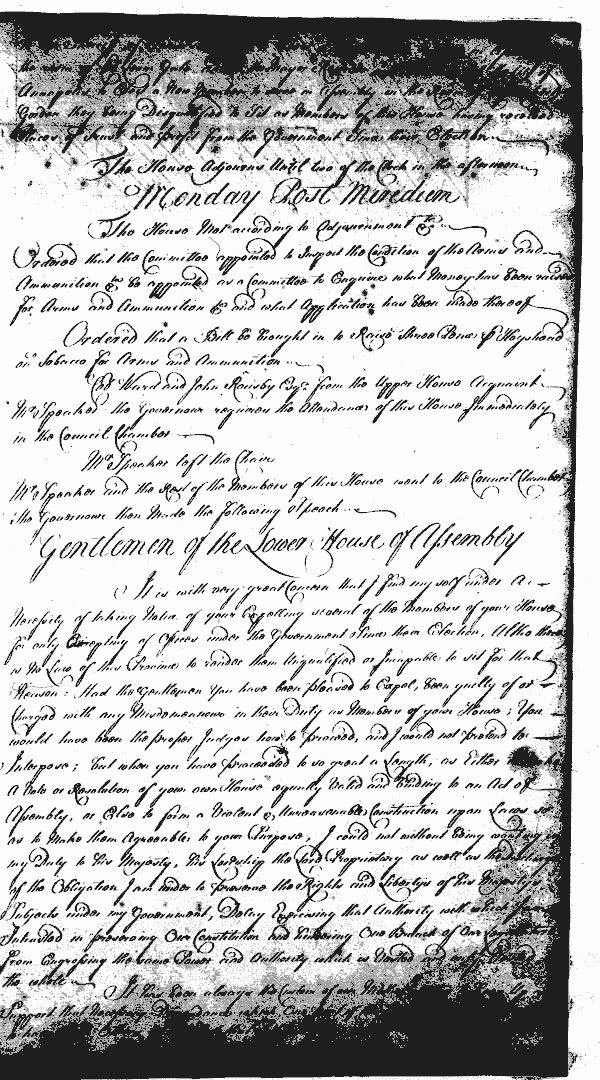 Annapolis to Elect a New Member to serve in Assembly in the
being Disqualified to Sit as Members of this House having received
Places of Trust and profit from the Government Since their Election
The House Adjourns Until two of the Clock in the afternoon
Monday Post Meridiem
The House Met according to Adjournment &c.
Ordered that the Committee appointed to Inspect the Condition of the Arms and
Ammunition &c be appointed as a Committee to Enquire what Money has been raised
for Arms and Ammunition &c and what Application has been made thereof
Ordered that a Bill be brought in to Raise three Pence p Hogshead
on Tobacco for Arms and Ammunition
Ward and John Rousby Esqrs from the Upper House Acquaint
Mr Speaker the Governour requires the Attendance of this House Immediately
in the Council Chamber
Mr Speaker left the Chair
Mr Speaker and the Rest of the Members of this House went to the Council Chamber
the Governour then Made the following Speech
Gentlemen of the Lower House of Assembly
It is with very great Concern that I find my self under a
Necessity of taking Notice of your Expelling several of the Members of your House
for only Accepting of Offices under the Government since their Election, Altho there
is no Law of this Province to render them Unqualified or Incapable to sit for that
Reason: Had the Gentlemen You have been pleased to Expel, been guilty of or
Charged with any Misdemeanour in their Duty as Members of your House; You
would have been the proper Judges how to proceed, and I would not pretend to
Interpose; but when you have proceeded to so great a Length, as Either to make
a Vote or Resolution of your own House equally Valid and binding to an Act of
Assembly, or Else to form a Violent & Unreasonable Construction upon Laws so
as to Make them Agreeable to your Purpose, I could not without being wanting in
my Duty to his Majesty, his Lordship the Lord Proprietary as well as the
of the Obligation I am under to preserve the Rights and Libertys of his Majestys
Subjects under my Government, Delay Exercising that Authority with which I am
Intrusted in preserving Our Constitution and hindering One Branch of Our
from Engrossing the same Power and Authority which is Vested in
the whole
It has been always the Custom of our
Support that